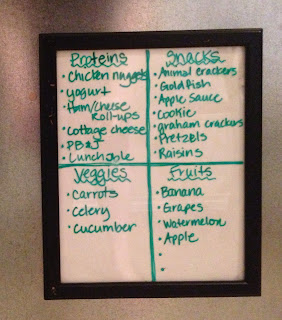 Proteins
• Chicken nuggets
• yogurt
• Ham/cheese
Roll-ups
• Cottage cheese
• PB&J
• Lunchable
Snacks
• Animal crackers
• Goldfish
• Apple Sauce
• Cookie
• graham crackers
• Pretzels
• Raisins
Veggies
• Carrots
• Celery
• Cucumber
Fruits
• Banana
• Grapes
• Watermelon
• Apple
•
•